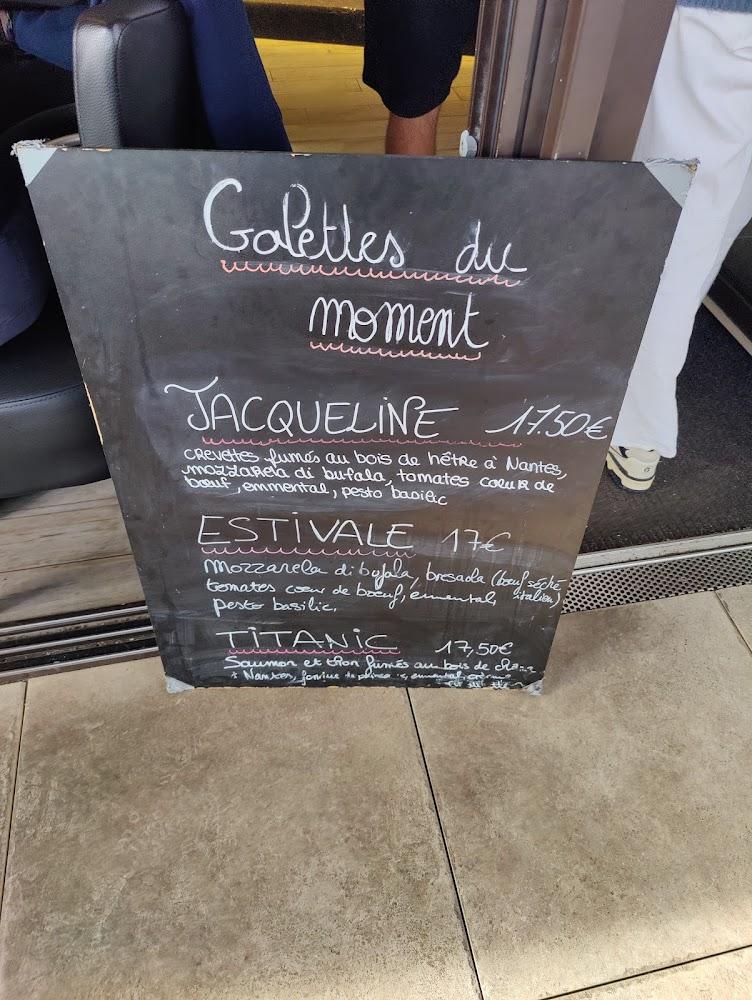 Galettes du
moment
JACQUELINE 17.50€
crevettes fumés au bois de hêtre à Nantes,
mozzarela di bufala, tomates coeur de
bœuf, emmental, pesto basilic
ESTIVALE 17€
Mozzarela di bufala, bresaola (bœuf séché
tomates cœur de bœuf, emmental, italien)
pesto basilic.
TITANIC 17,50€
Saumon et thon fumés au bois de
à Nantes, emmental, crème